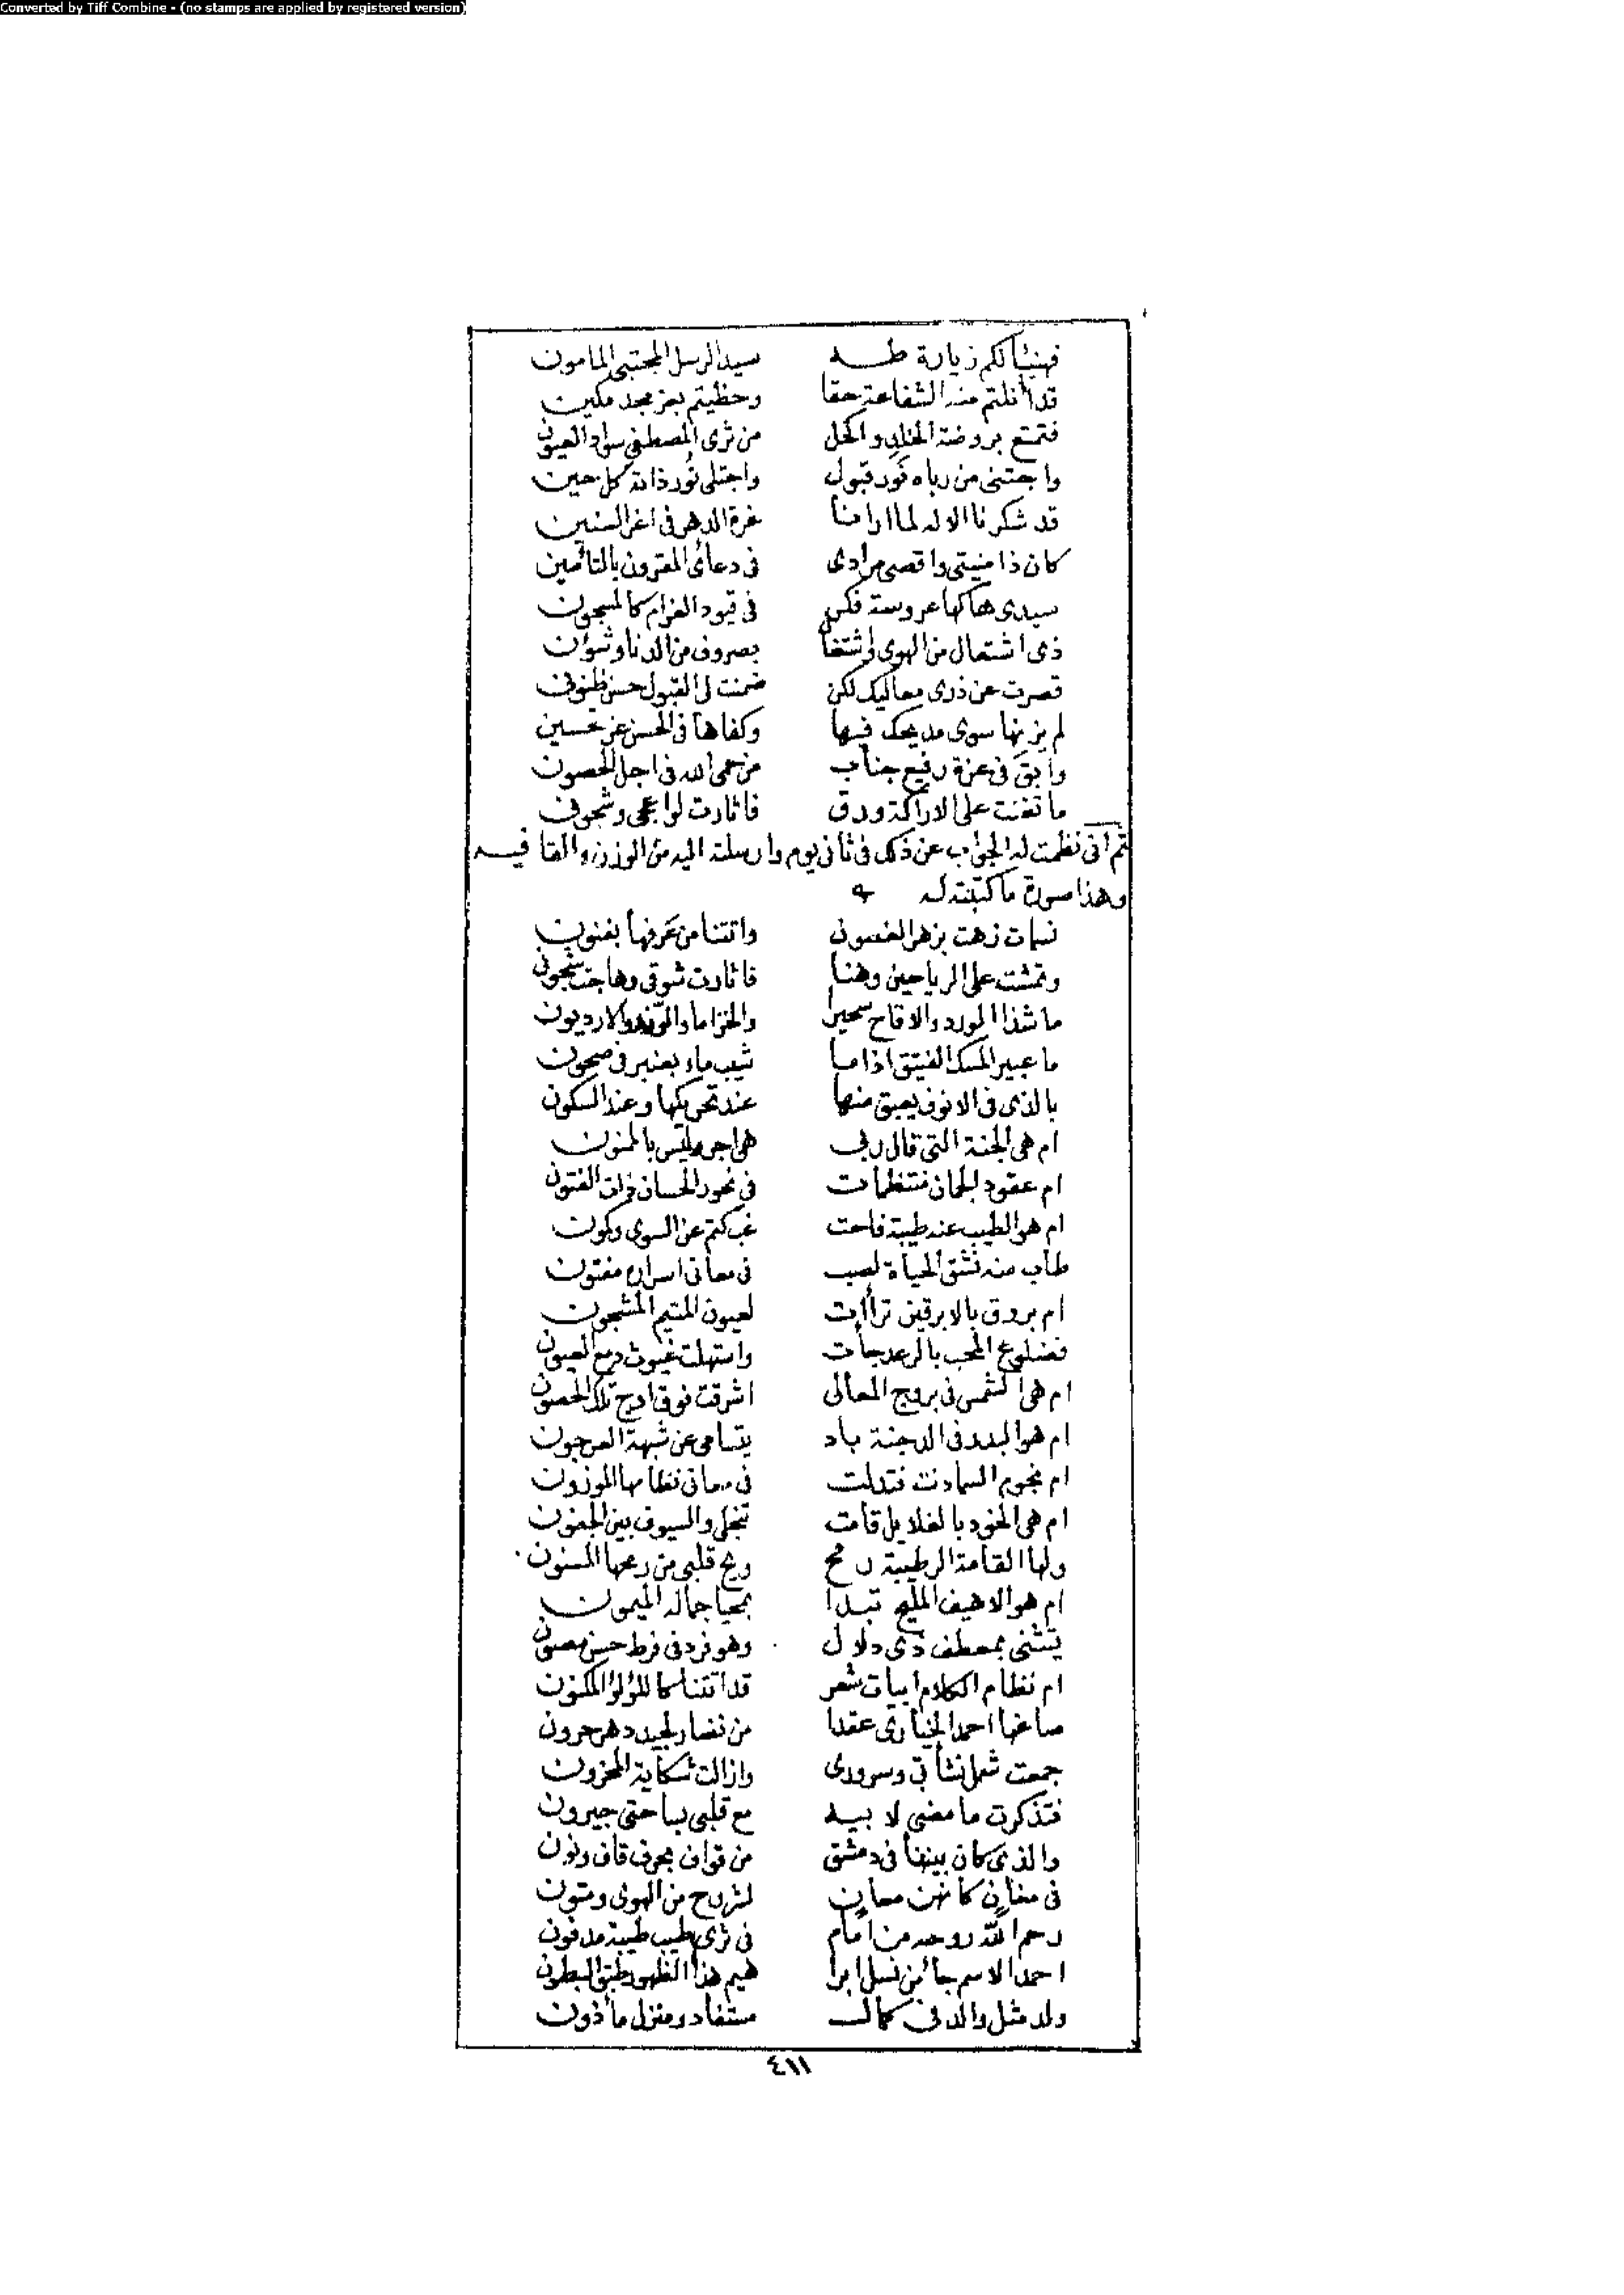 Converted by Tiff Combine - (no stamps are applied by registered version)
فهنيئا لكم زيارة طه سيد الرسل المجتبى المامون
قد أنلتم منه الشفاعة حقا وحظيتم بعز مجد مكين
فتمتع بروضة الخلد واكحل من ثرى المصطفى سواد العيون
واجتنى من رباه نور قبول واجتلى نور ذاته كل حين
قد شكرنا الاله لما ارانا غرة الدهر فى اغر السنين
كان ذا منيتى واقصى مرادى فى دعائى المقرون بالتامين
سيدى هاكها عروسة فكر فى قيود الغرام كالمسجون
ذى اشتعال من الهوى واشتغال بصروف من الدنا وشؤن
قصرت عن ذرى معاليك لكن ضمنت لى القبول حسن ظنونى
لم يزنها سوى مديحك فيها وكفاها فى الحسن عن تحسين
وابق فى عزة رفيع جناب من حمى الله فى اجل الحصون
ما تغنت على الاراكة ورق فاثارت لواعجى وشجونى
ثم انى نظمت له الجواب عن ذلك فى ثانى يوم وارسلته اليه من الوزن والقافيه
وهذا صورة ما كتبته له
نسمات زهت بزهر الغصون واتتنا من عرفها بفنون
وتمشت على الرياحين وهنا فاثارت شوقى وهاجت شجونى
ما شذا الورد والاقاح سحيرا والخزاما والرند والارديون
ما عبير المسك الفتيق اذا ما شيب ماء بعنبر فى صحون
بالذى فى الانوف يعبق منها عند تحريكها وعند السكون
ام هى الجنة التى قال ربى هى اجر وليس بالممنون
ام عقود الجمان منتظمات فى نحور الحسان ذات الفتون
ام هو الطيب عند طيبة فاحت غب كتم عن السوى وكمون
طاب منه نشق الحياة لصب فى معانى اسراره مفتون
ام بروق بالابرقين تراأت لعيون المتيم المشجون
فضلوع المحب بالرعد جأت واستهلت غيوث دمع العيون
ام هى الشمس فى بروج المعالى اشرقت فوق اوج تلك الحصون
ام هو البدر فى الدجنة باد يتسامى عن شبهة العرجون
ام نجوم السما دنت فتدلت فى معانى نظامها الموزون
ام هى الخود بالغلايل قامت تنجلى والسيوف بين الجفون
ولها القامة الرطيبة رمح ويح قلبى من رمحها المسنون
ام هو الاهيف المليح تبدا بمحيا جماله الميمون
يتثنى بمعطف ذى دلال وهو فرد فى فرط حسن مصون
ام نظام الكلام ابيات شعر قد اتتنا كاللؤلؤ المكنون
صاغها احمد الخيارى عقدا من نضار لجيد دهر حرون
جمعت شمل نشأتى وسرورى وازالت شكاية المحزون
فتذكرت ما مضى لابيه مع قلبى بساحتى جيرون
والذى كان بيننا فى دمشق من قواف بحرف قاف ونون
فى مغان كانهن معان لشروح من الهوى ومتون
رحم الله روحه من امام فى ثرى طيب طيبة مدفون
احمد الاسم جا من نسل ابرا هيم هذا الظهور طبق البطون
ولد مثل والد فى كمال مستفاد ومنزل مأذون
٤١١